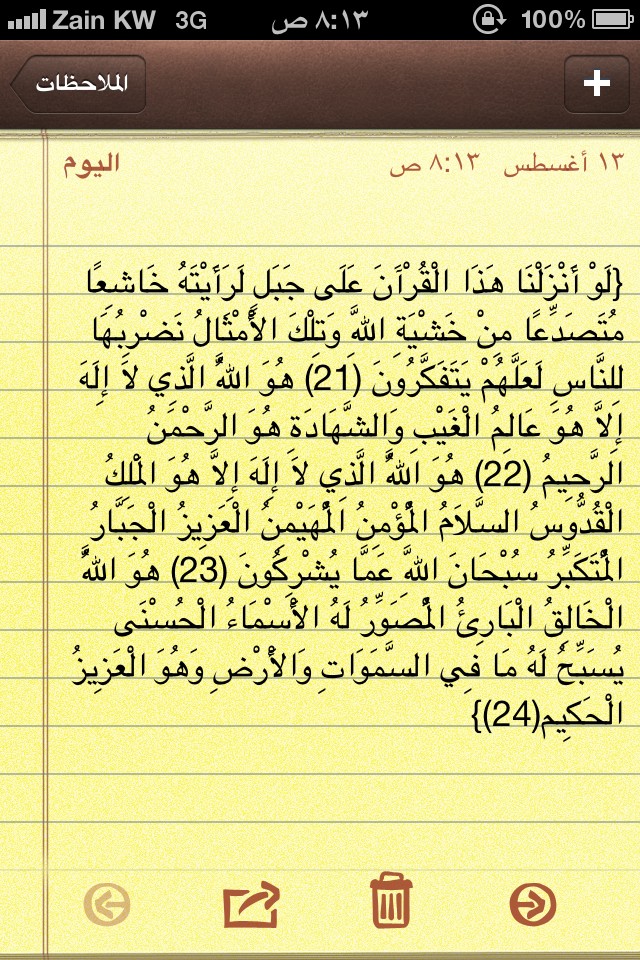 Zain KW 3G ٨:١٣ ص 100%
الملاحظات +
اليوم ١٣ أغسطس ٨:١٣ ص
{لَوْ أَنْزَلْنَا هَذَا الْقُرْآَنَ عَلَى جَبَلٍ لَرَأَيْتَهُ خَاشِعًا
مُتَصَدِّعًا مِنْ خَشْيَةِ اللَّهِ وَتِلْكَ الْأَمْثَالُ نَضْرِبُهَا
لِلنَّاسِ لَعَلَّهُمْ يَتَفَكَّرُونَ (21) هُوَ اللَّهُ الَّذِي لَا إِلَهَ
إِلَّا هُوَ عَالِمُ الْغَيْبِ وَالشَّهَادَةِ هُوَ الرَّحْمَنُ
الرَّحِيمُ (22) هُوَ اللَّهُ الَّذِي لَا إِلَهَ إِلَّا هُوَ الْمَلِكُ
الْقُدُّوسُ السَّلَامُ الْمُؤْمِنُ الْمُهَيْمِنُ الْعَزِيزُ الْجَبَّارُ
الْمُتَكَبِّرُ سُبْحَانَ اللَّهِ عَمَّا يُشْرِكُونَ (23) هُوَ اللَّهُ
الْخَالِقُ الْبَارِئُ الْمُصَوِّرُ لَهُ الْأَسْمَاءُ الْحُسْنَى
يُسَبِّحُ لَهُ مَا فِي السَّمَوَاتِ وَالْأَرْضِ وَهُوَ الْعَزِيزُ
الْحَكِيم(24)}